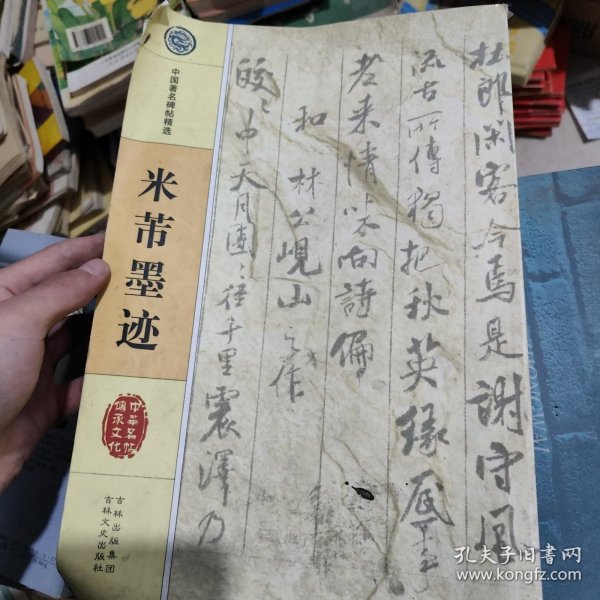 中国著名碑帖精选
米芾墨迹
中華名帖
傳承文化
吉林出版集团
吉林文史出版社
杜郎閑客今焉是謝守風
流古所傳獨把秋英緣底事
老来情味向詩偏
和林公峴山之作
皎々中天月團々徑千里震澤乃
孔夫子旧书网
www.kongfz.com